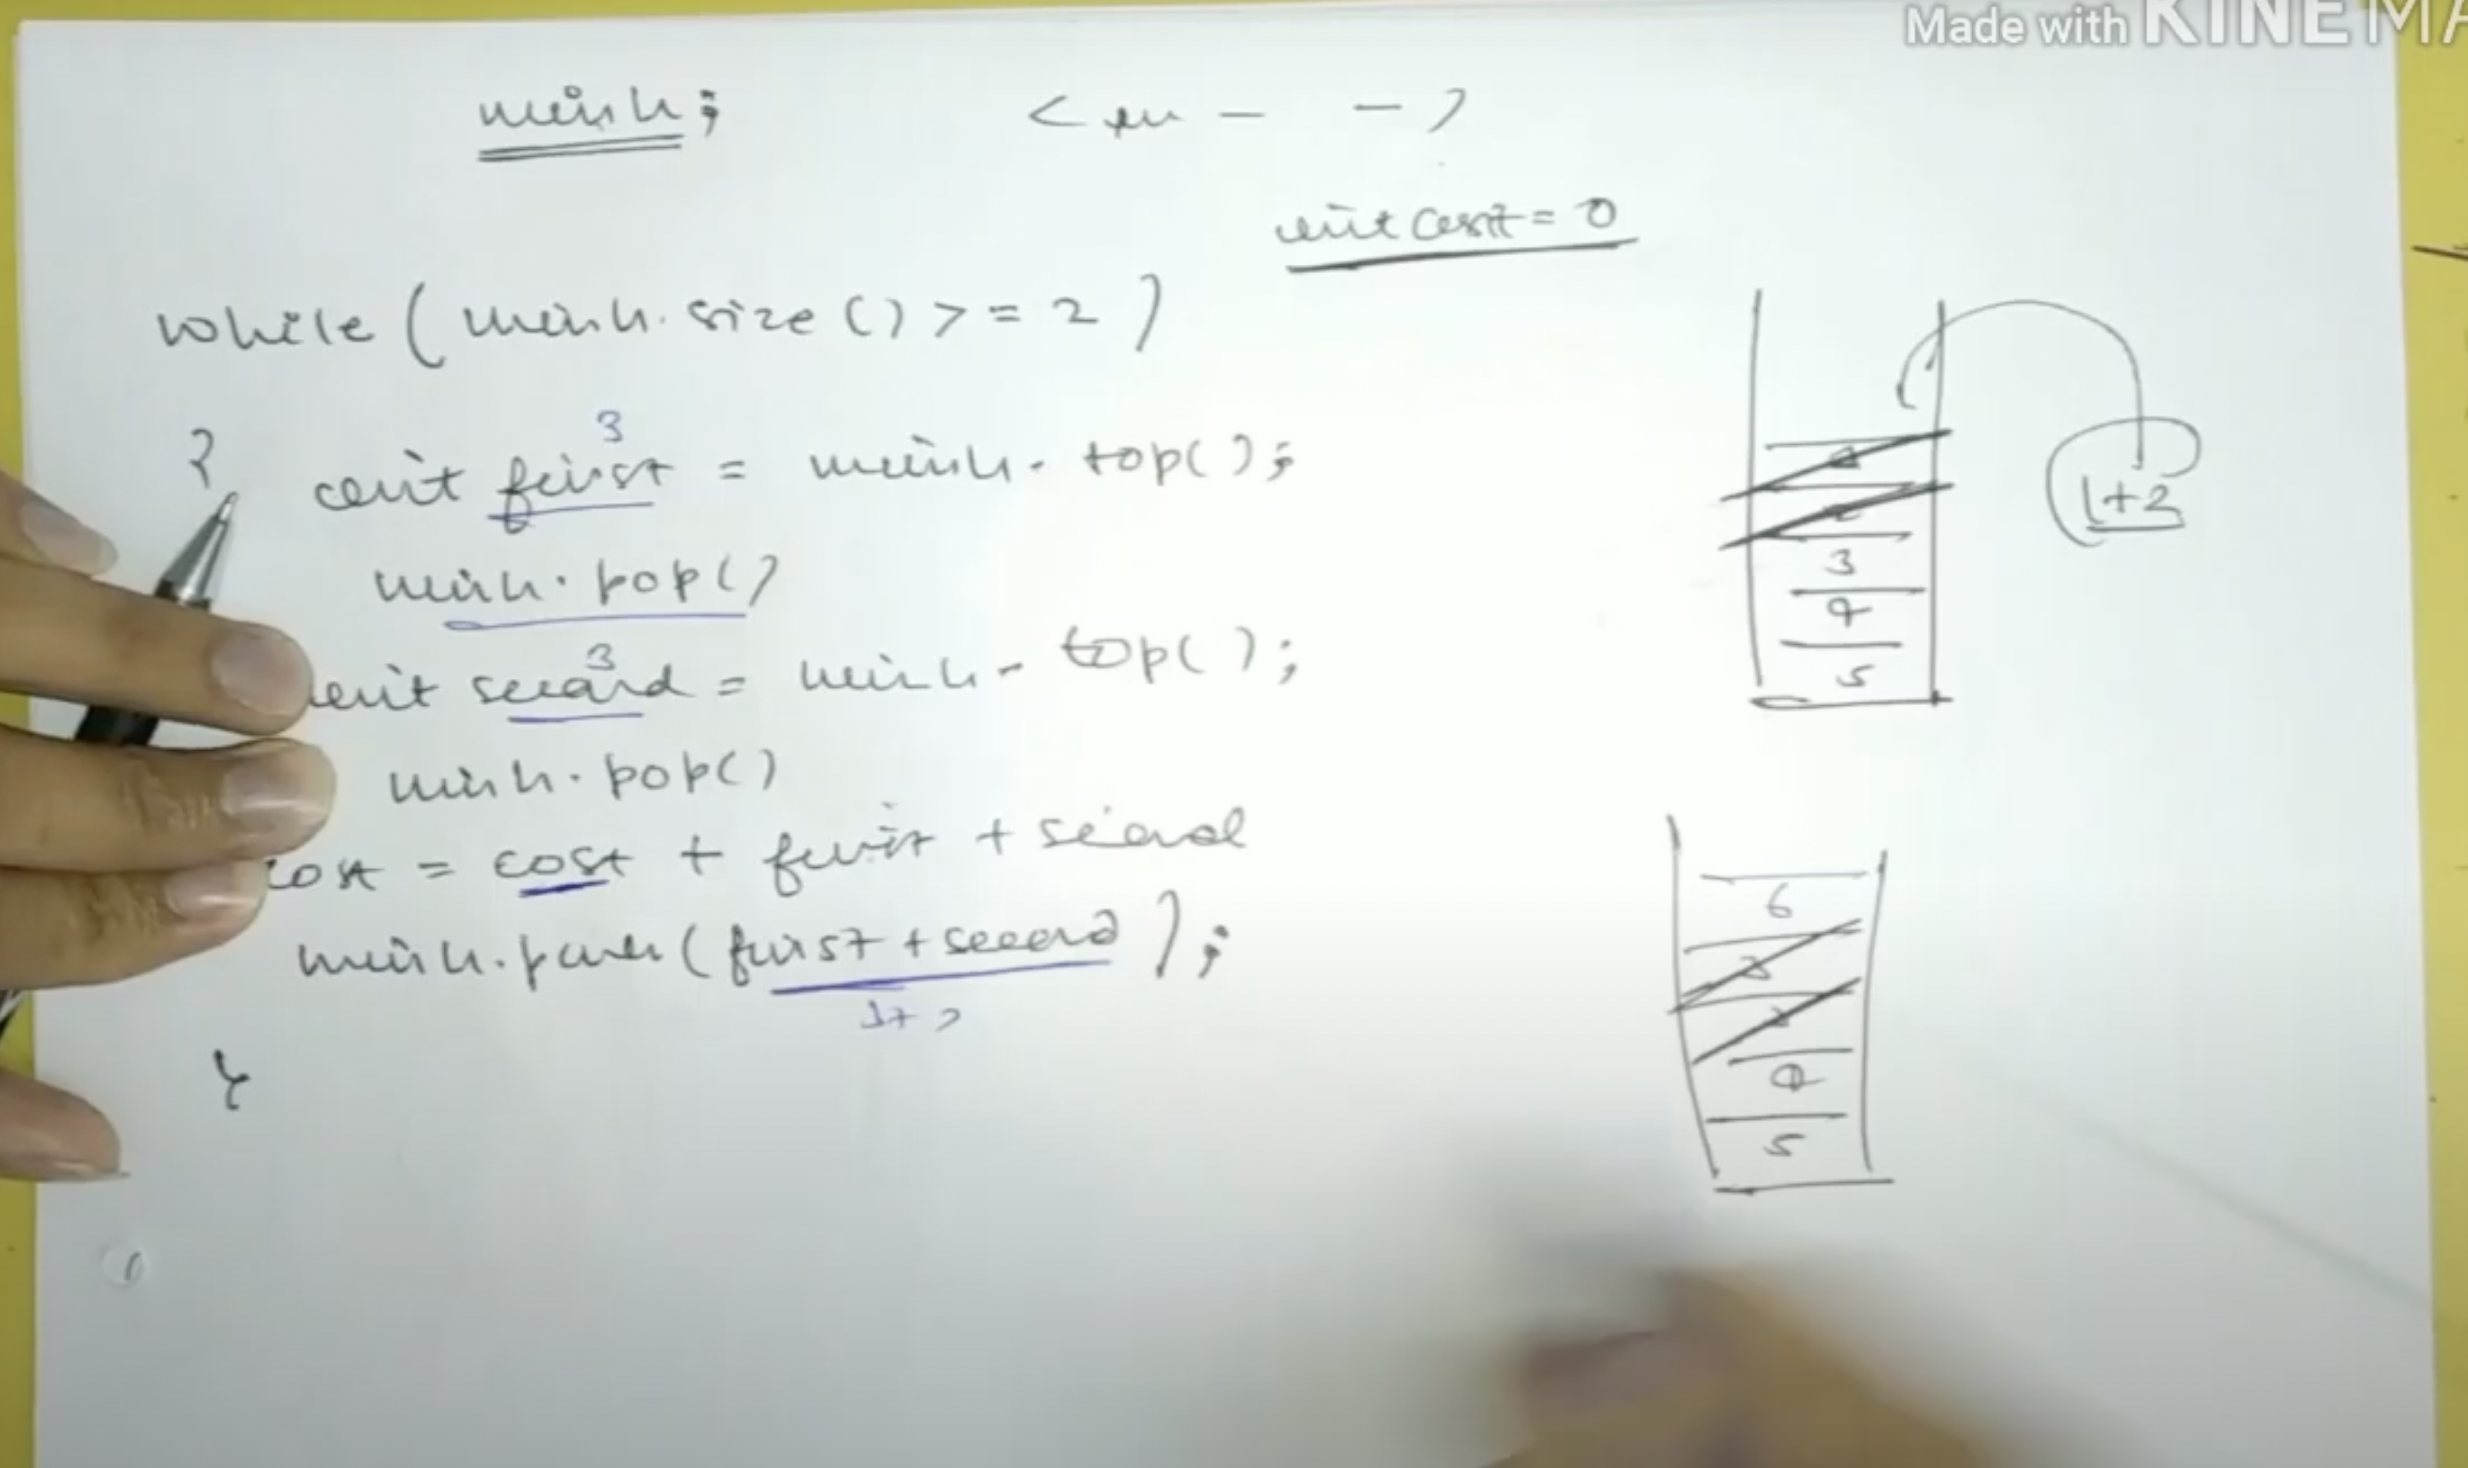 Made with KINEMA
minh;
int cost = 0
while ( minh. size () >= 2 )
{
3
int first = minh. top();
minh. pop()
3
int second = minh. top();
minh. pop()
cost = cost + first + second
minh. push ( first + second );
}
1+2
3
4
5
6
3
3
4
5